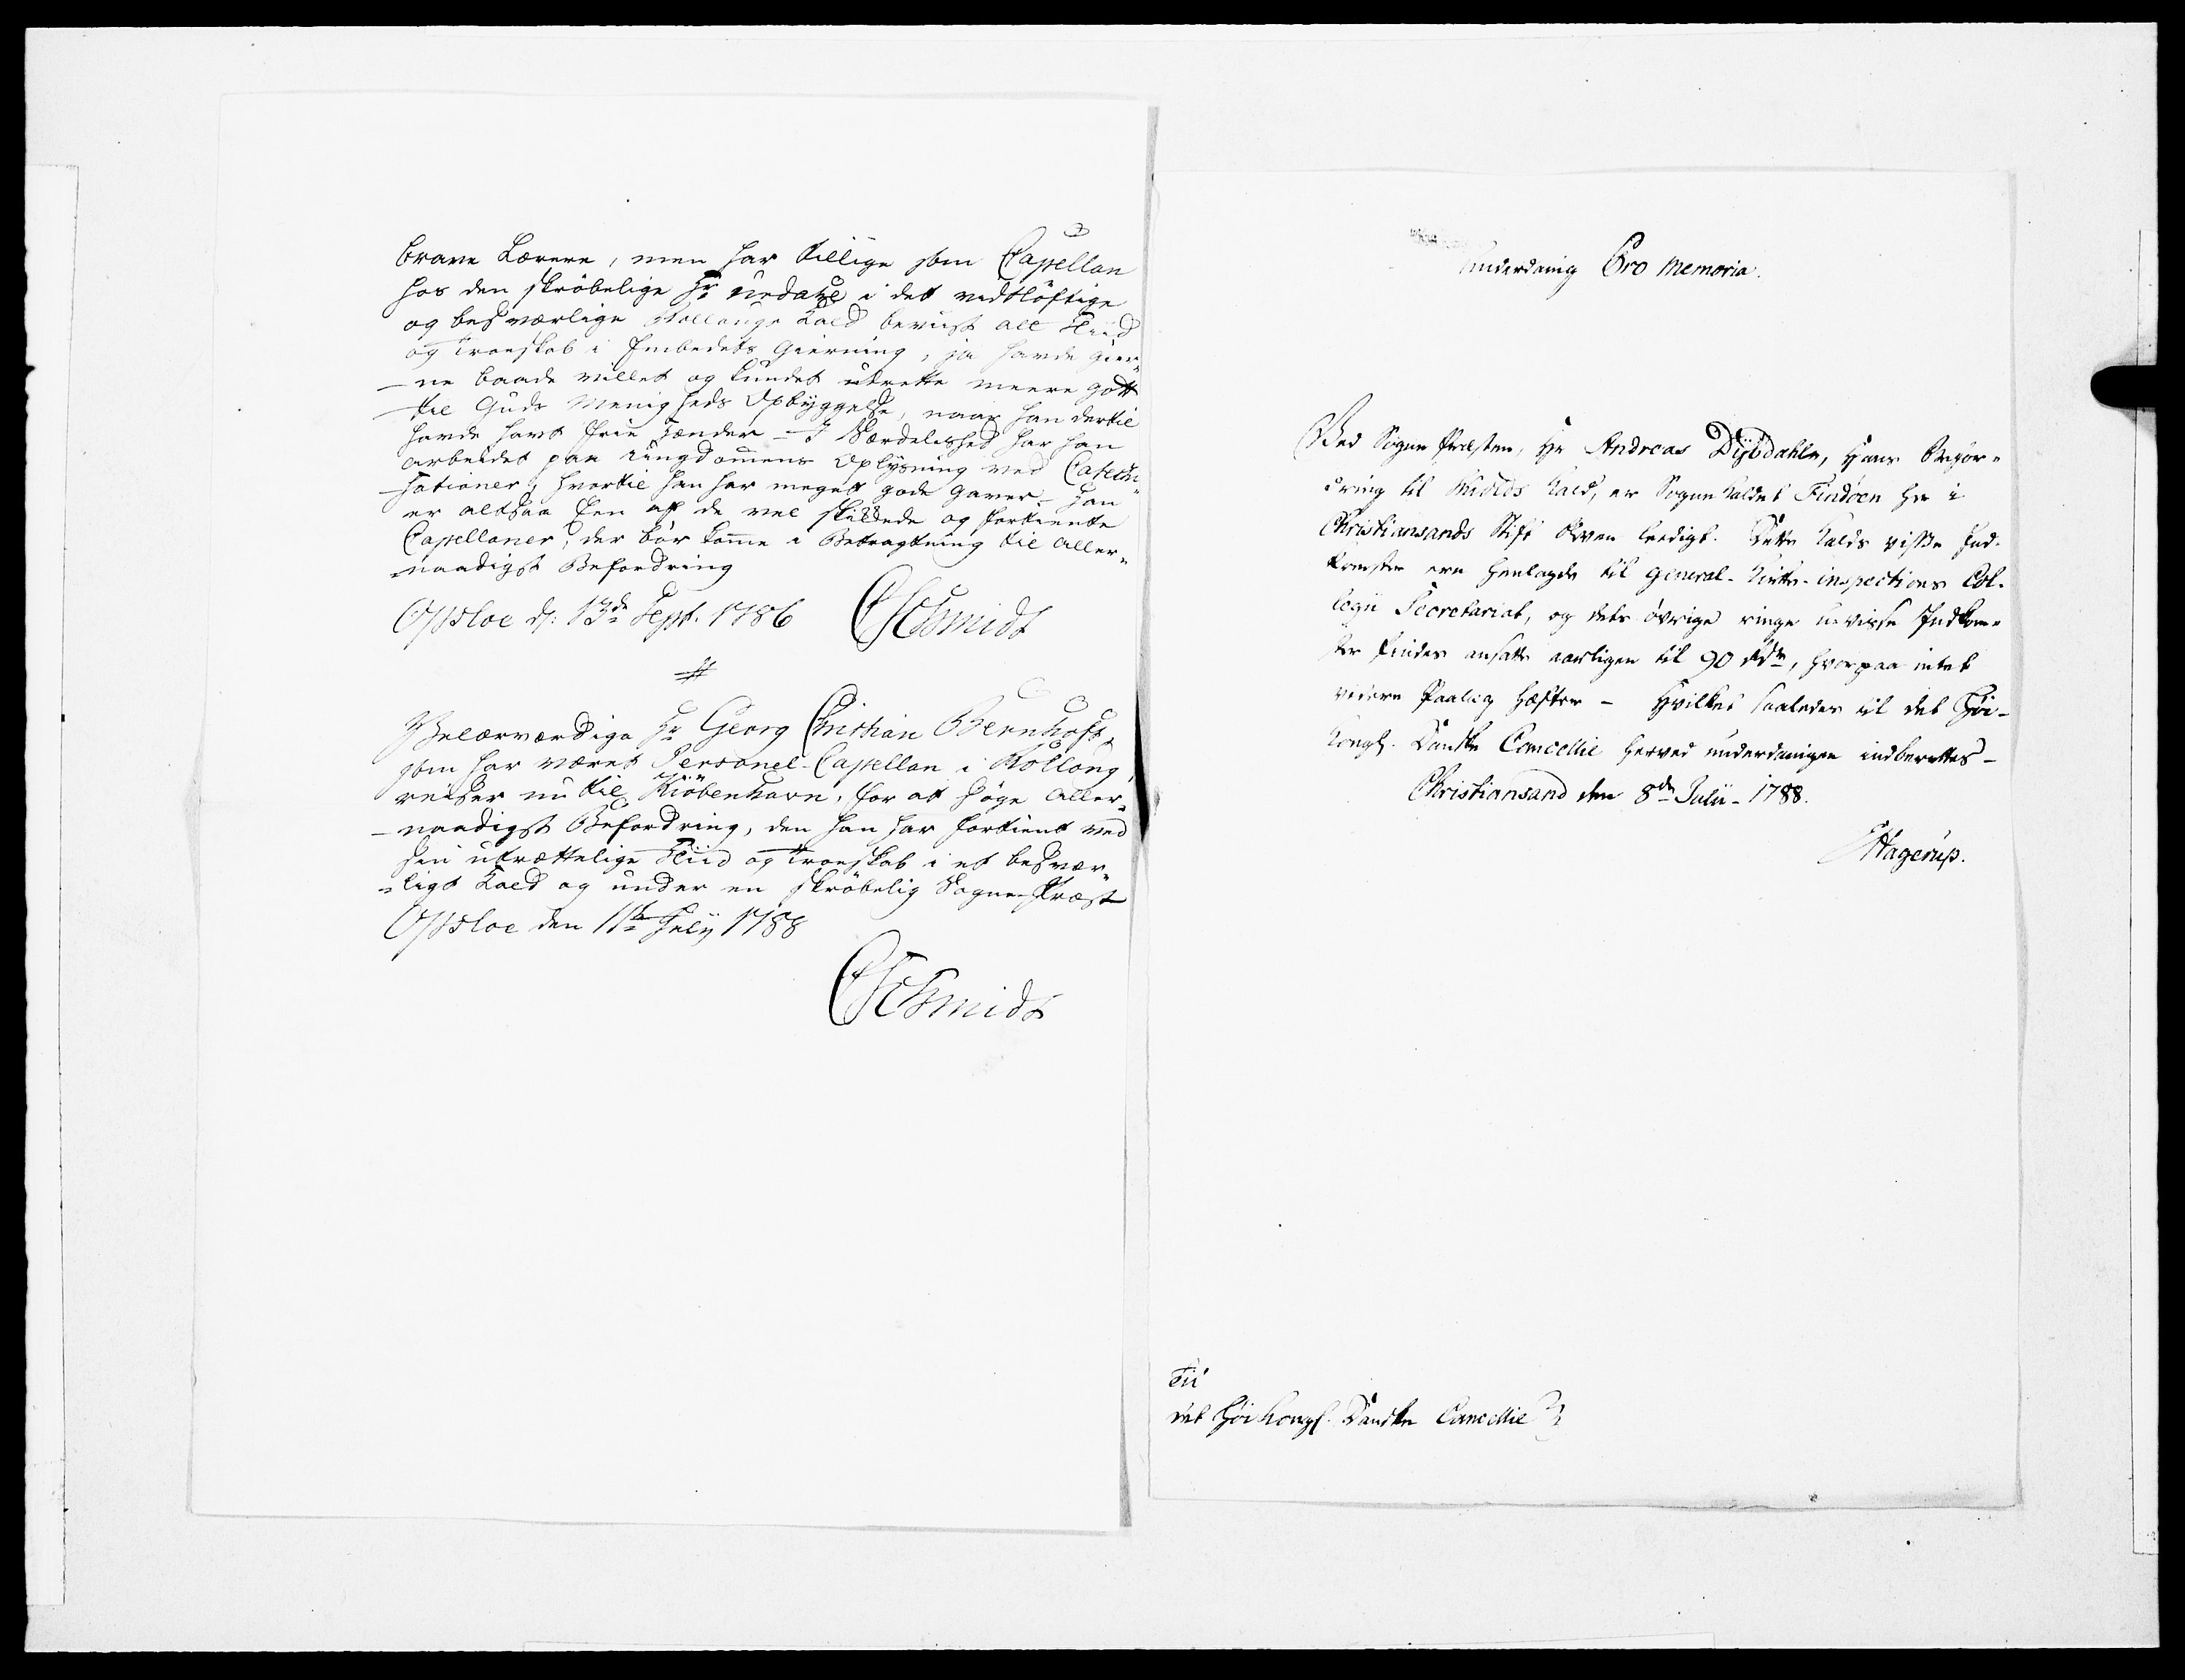 brave Lærere, men har tillige som Capellan
hos den skröbelige Hr Urdahl i det vidtlöftige
og besværlige Rollangs Kald beviist all Fliid
og Troeskab i Embedets Gierning, ja havde gier-
ne baade villet og kundet udrette meere gott
til Guds Menigheds Opbyggelse, naar han dertil
havde havt friie Hænder - I Særdeleshed har han
arbeidet paa Ungdommens Oplysning ved Catechi-
sationer, hvortil han har meget gode Gaver - Han
er altsaa Een af de vel skikkede og fortiente
Capellaner, der bör komme i Betragtning til Aller-
naadigst Befordring
Opsloe d: 13de Sept. 1786 CSchmidt
Velærværdige Hr Georg Christian Bernhoft,
som har været Personel-Capellan i Rollong,
reiser nu til Kiöbenhavn, for at söge Aller-
naadigst Befordring, den han har fortient ved
sin utrættelige Fliid og Troeskab i et besvær-
ligt Kald og under en skröbelig Sogne-Præst
Opsloe den 11te July 1788
CSchmidt
Underdanig Pro Memoria.
Ved Sogne Præsten, Hr Andreas Dybdahls, Hans Befor-
dring til Kald, er Sogne Kaldet Findöen her i
Christiansands Stift bleven leedigt. Dette Kalds visse Ind-
komster ere henlagde til General-Kirke-inspections Col-
legii Secretariat, og dets övrige ringe uvisse Indkom-
ster findes ansatte aarligen til 90 rdr, hvorpaa intet
videre Paalæg hæfter - Hvilket saaledes til det Höi-
Kongl. Danske Cancellie herved underdanigen indberettes -
Christiansand den 8de Julii - 1788.
Hagerup.
Til
det Höi Kongl. Danske Cancellie